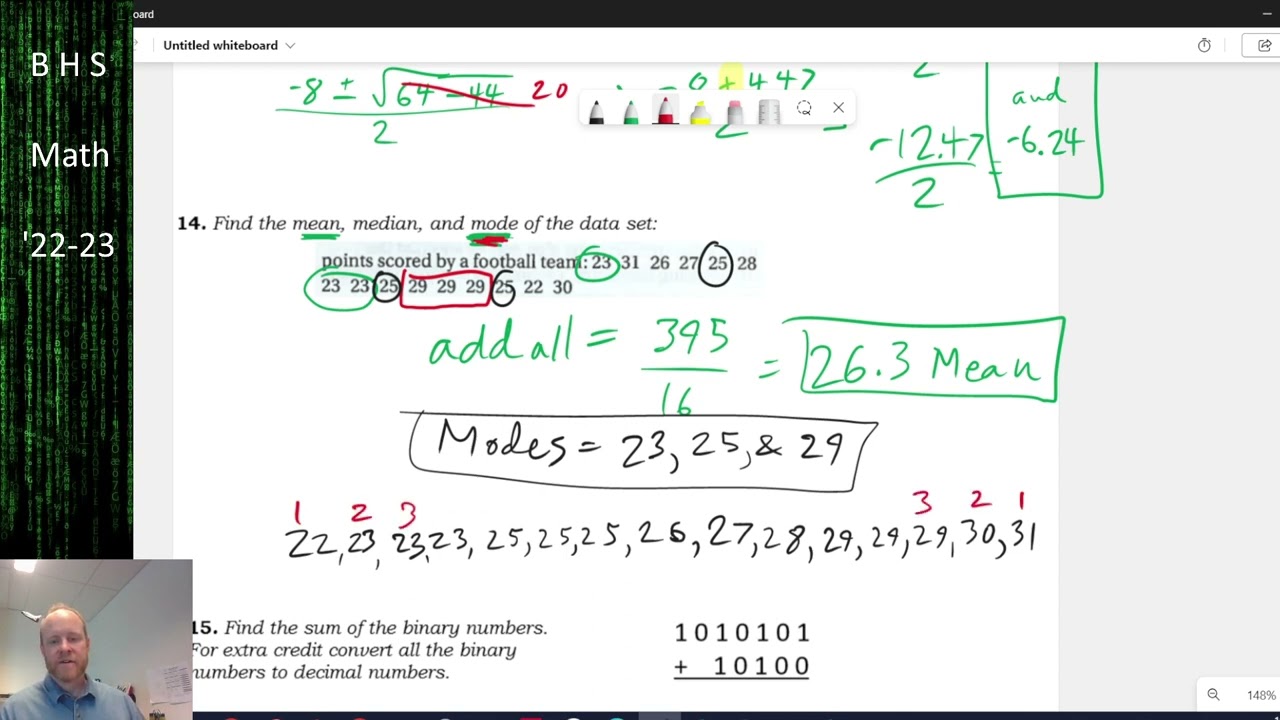 board
B H S
Math
'22-23
Untitled whiteboard
-8 ± √64 - 44 20
2
+ 4.47
2
-12.47
2
and
-6.24
14. Find the mean, median, and mode of the data set:
points scored by a football team: 23 31 26 27 25 28
23 23 25 29 29 29 25 22 30
add all = 395
16
= 26.3 Mean
Modes = 23, 25, & 29
1 2 3 3 2 1
22, 23, 23, 23, 25, 25, 25, 26, 27, 28, 29, 29, 29, 30, 31
15. Find the sum of the binary numbers.
For extra credit convert all the binary
numbers to decimal numbers.
1010101
+ 10100
148%